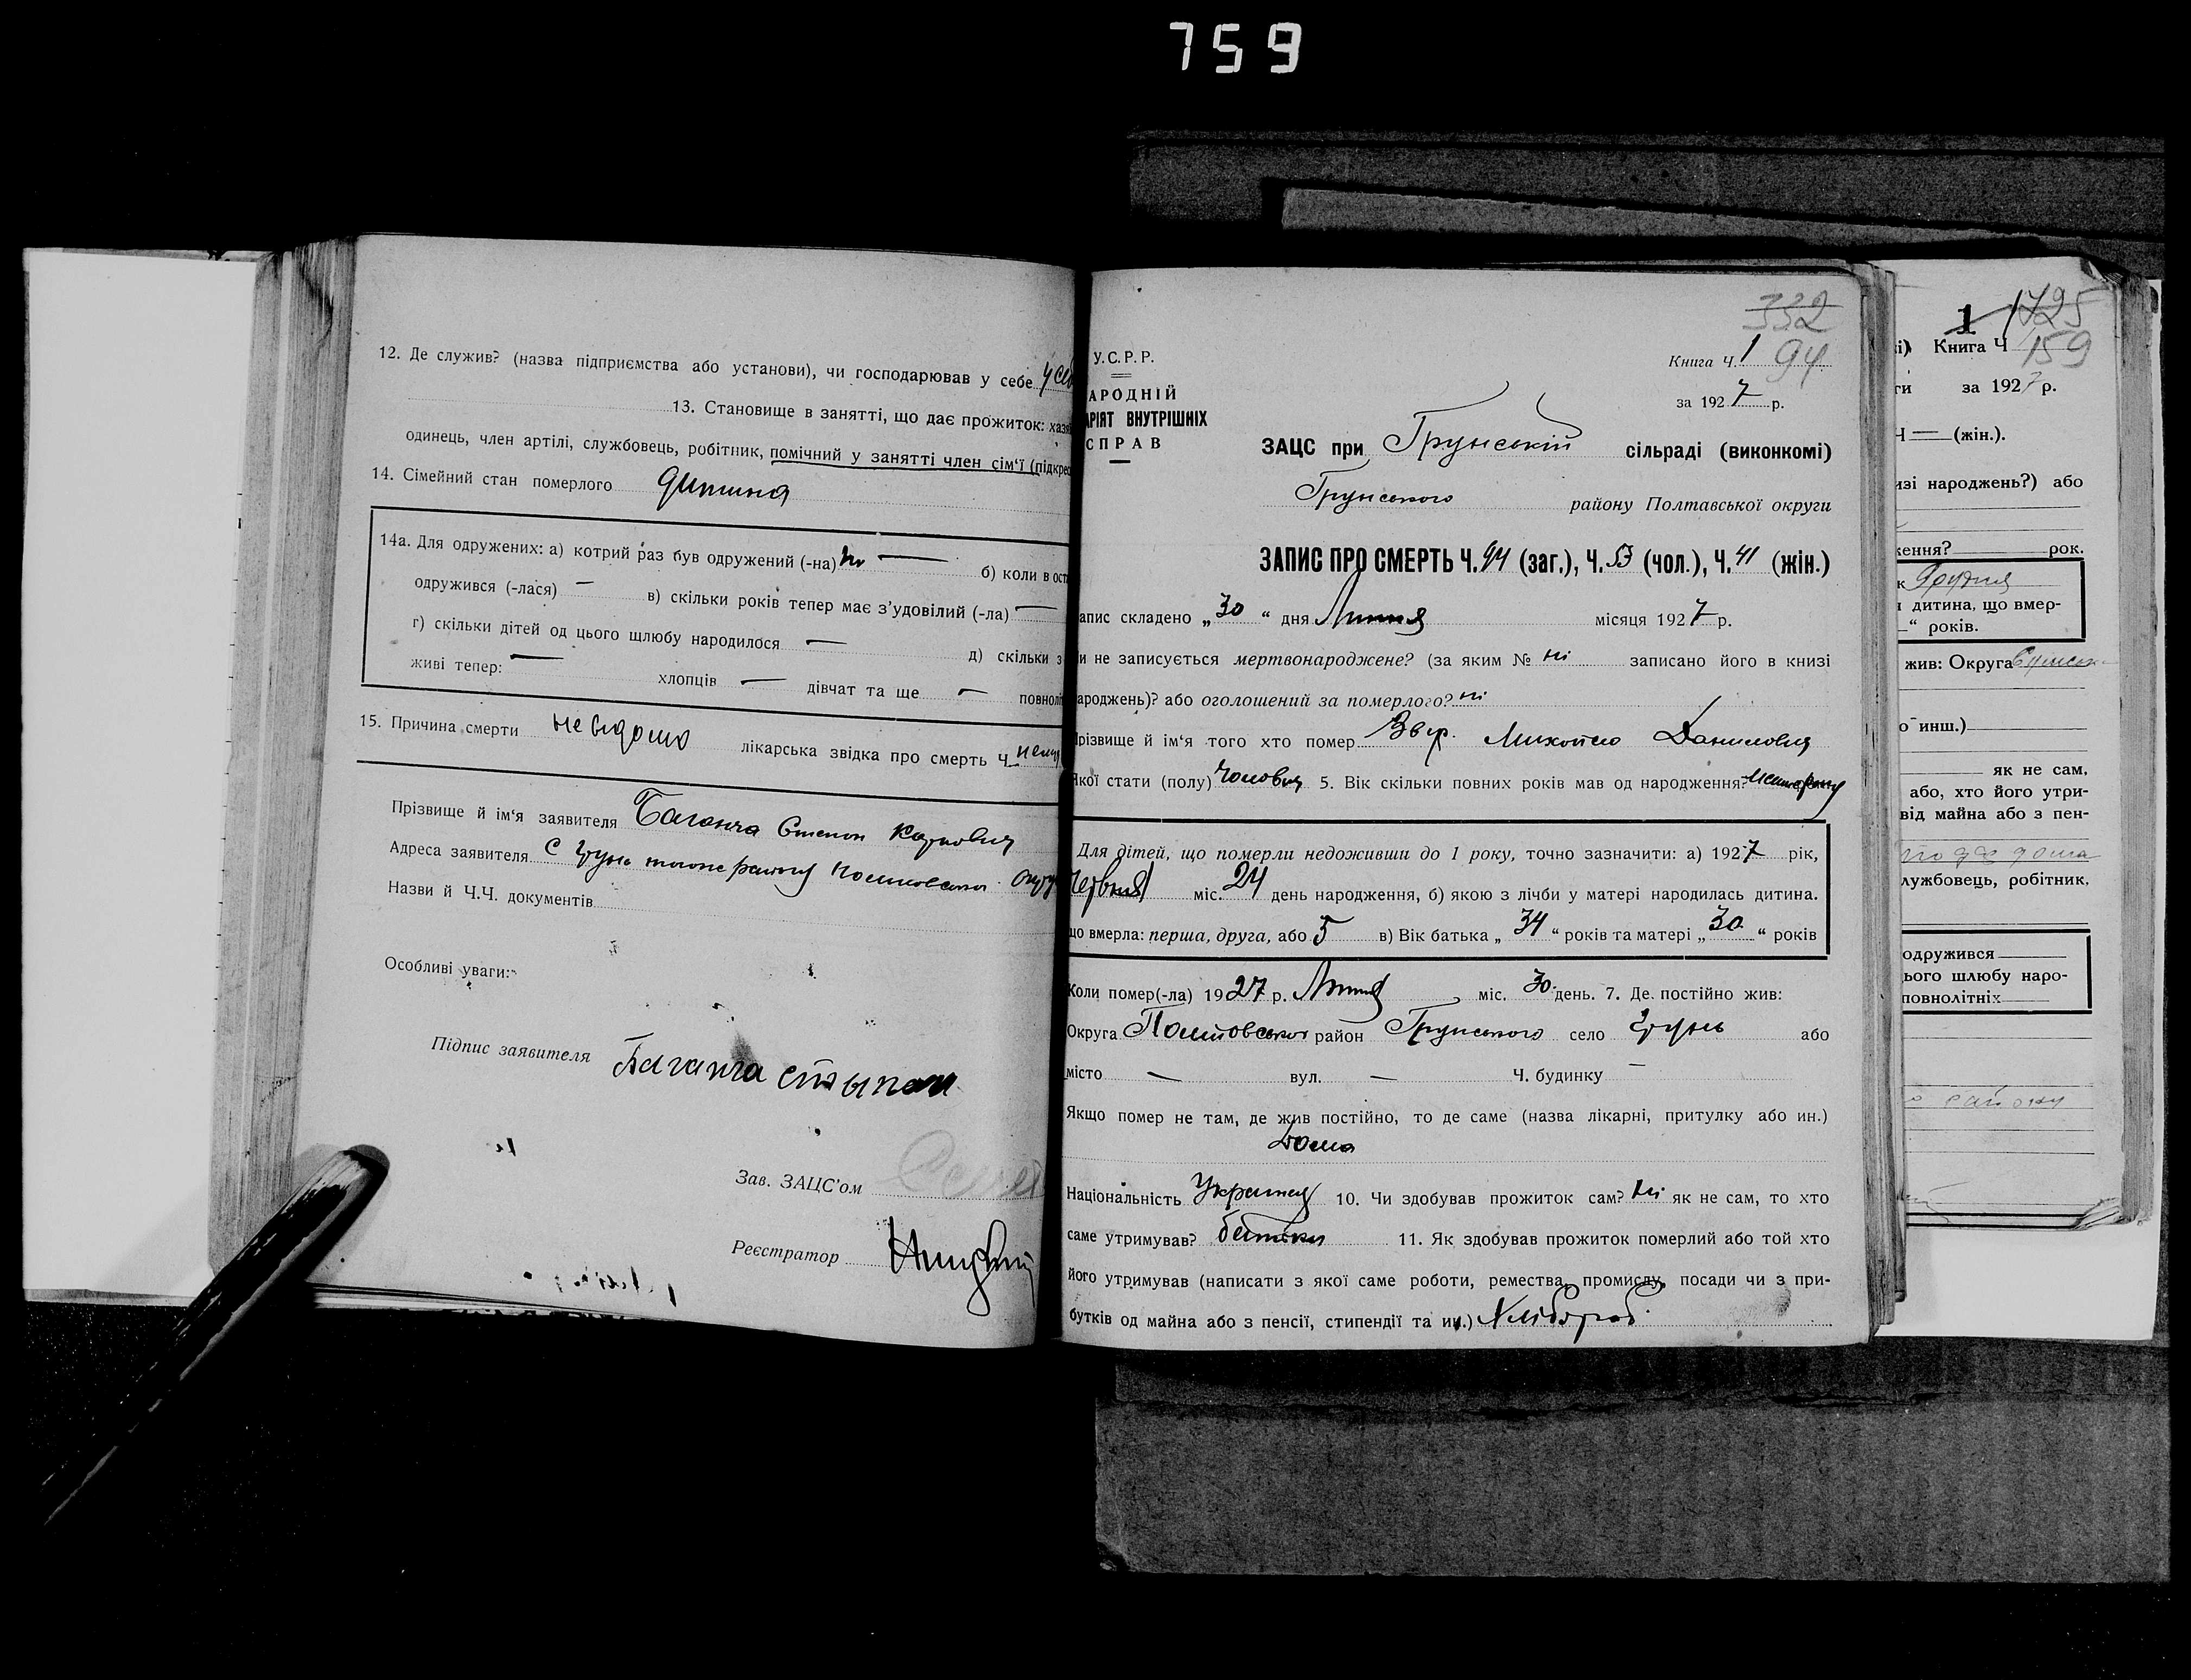 759
12. Де служив? (назва підприємства або установи), чи господарював у себе у себ
13. Становище в занятті, що дає прожиток: хазя
одинець, член артілі, службовець, робітник, помічний у занятті член сім'ї (підкрес
14. Сімейний стан померлого дитина
14а. Для одружених: а) котрий раз був одружений (-на) ні — б) коли в ост
одружився (-лася) — в) скільки років тепер має з'удовілий (-ла) —
г) скільки дітей од цього шлюбу народилося — д) скільки з
живі тепер: — хлопців — дівчат та ще — повноліт
15. Причина смерти невідомо лікарська звідка про смерть Ч.
Прізвище й ім'я заявителя Баганча Степан Карпович
Адреса заявителя с Грунь того ж району Полтавської округ
Назви й Ч.Ч. документів
Особливі уваги:
Підпис заявителя Баганча
Зав. ЗАЦС'ом
Реєстратор
332
У.С.Р.Р.
АРОДНІЙ
АРІЯТ ВНУТРІШНІХ
СПРАВ
Книга Ч. 1 94
за 1927 р.
ЗАЦС при Грунській сільраді (виконкомі)
Грунського району Полтавської округи
ЗАПИС ПРО СМЕРТЬ Ч. 94 (заг.), Ч. 53 (чол.), Ч. 41 (жін.)
апис складено „30“ дня Липня місяця 1927 р.
и не записується мертвонароджене? (за яким № ні записано його в книзі
ароджень)? або оголошений за померлого? ні
Прізвище й ім'я того хто помер Михайло Данилович
Якої стати (полу) Чоловіч 5. Вік скільки повних років мав од народження?
Для дітей, що померли недоживши до 1 року, точно зазначити: а) 1927 рік,
Червня міс. 24 день народження, б) якою з лічби у матері народилась дитина.
що вмерла: перша, друга, або 5 в) Вік батька „34“ років та матері „30“ років
Коли помер(-ла) 1927 р. Липня міс. 30 день. 7. Де постійно жив:
Округа Полтовської район Грунського село Грунь або
місто — вул. — Ч. будинку —
Якщо помер не там, де жив постійно, то де саме (назва лікарні, притулку або ин.)
Дома
Національність 10. Чи здобував прожиток сам? ні як не сам, то хто
саме утримував? батьки 11. Як здобував прожиток померлий або той хто
його утримував (написати з якої саме роботи, ремества, промислу, посади чи з при-
бутків од майна або з пенсії, стипендії та ин.) Хлібороб
1 1725
і) Книга Ч 159
ти за 1927 р.
Ч — (жін.).
изі народжень?) або
ження? рок.
к
я дитина, що вмер-
—“ років.
жив: Округа
о инш.)
як не сам,
або, хто його утри-
від майна або з пен-
лужбовець, робітник,
одружився
ього шлюбу наро-
повнолітніх
району